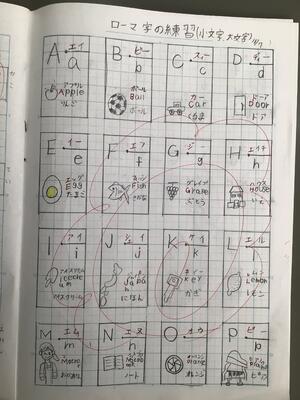 ローマ字の練習(小文字、大文字)
A エイ
a
アップル
Apple
りんご
B ビー
b
ボール
Ball
ボール
C スィー
c
カー
Car
くるま
D ディー
d
ドアー
Door
ドア
E イー
e
エッグ
Egg
たまご
F エフ
f
Fish
さかな
G ジー
g
グレイプ
Grape
ぶどう
H エイチ
h
ハウス
House
いえ
I アイ
i
アイスクリーム
アイスクリーム
J ジェイ
j
にほん
K ケイ
k
キー
key
かぎ
L エル
l
レモン
Lemon
レモン
M エム
m
N エヌ
n
ノート
O オウ
o
オレンジ
Orange
オレンジ
P ピー
p
ピアノ